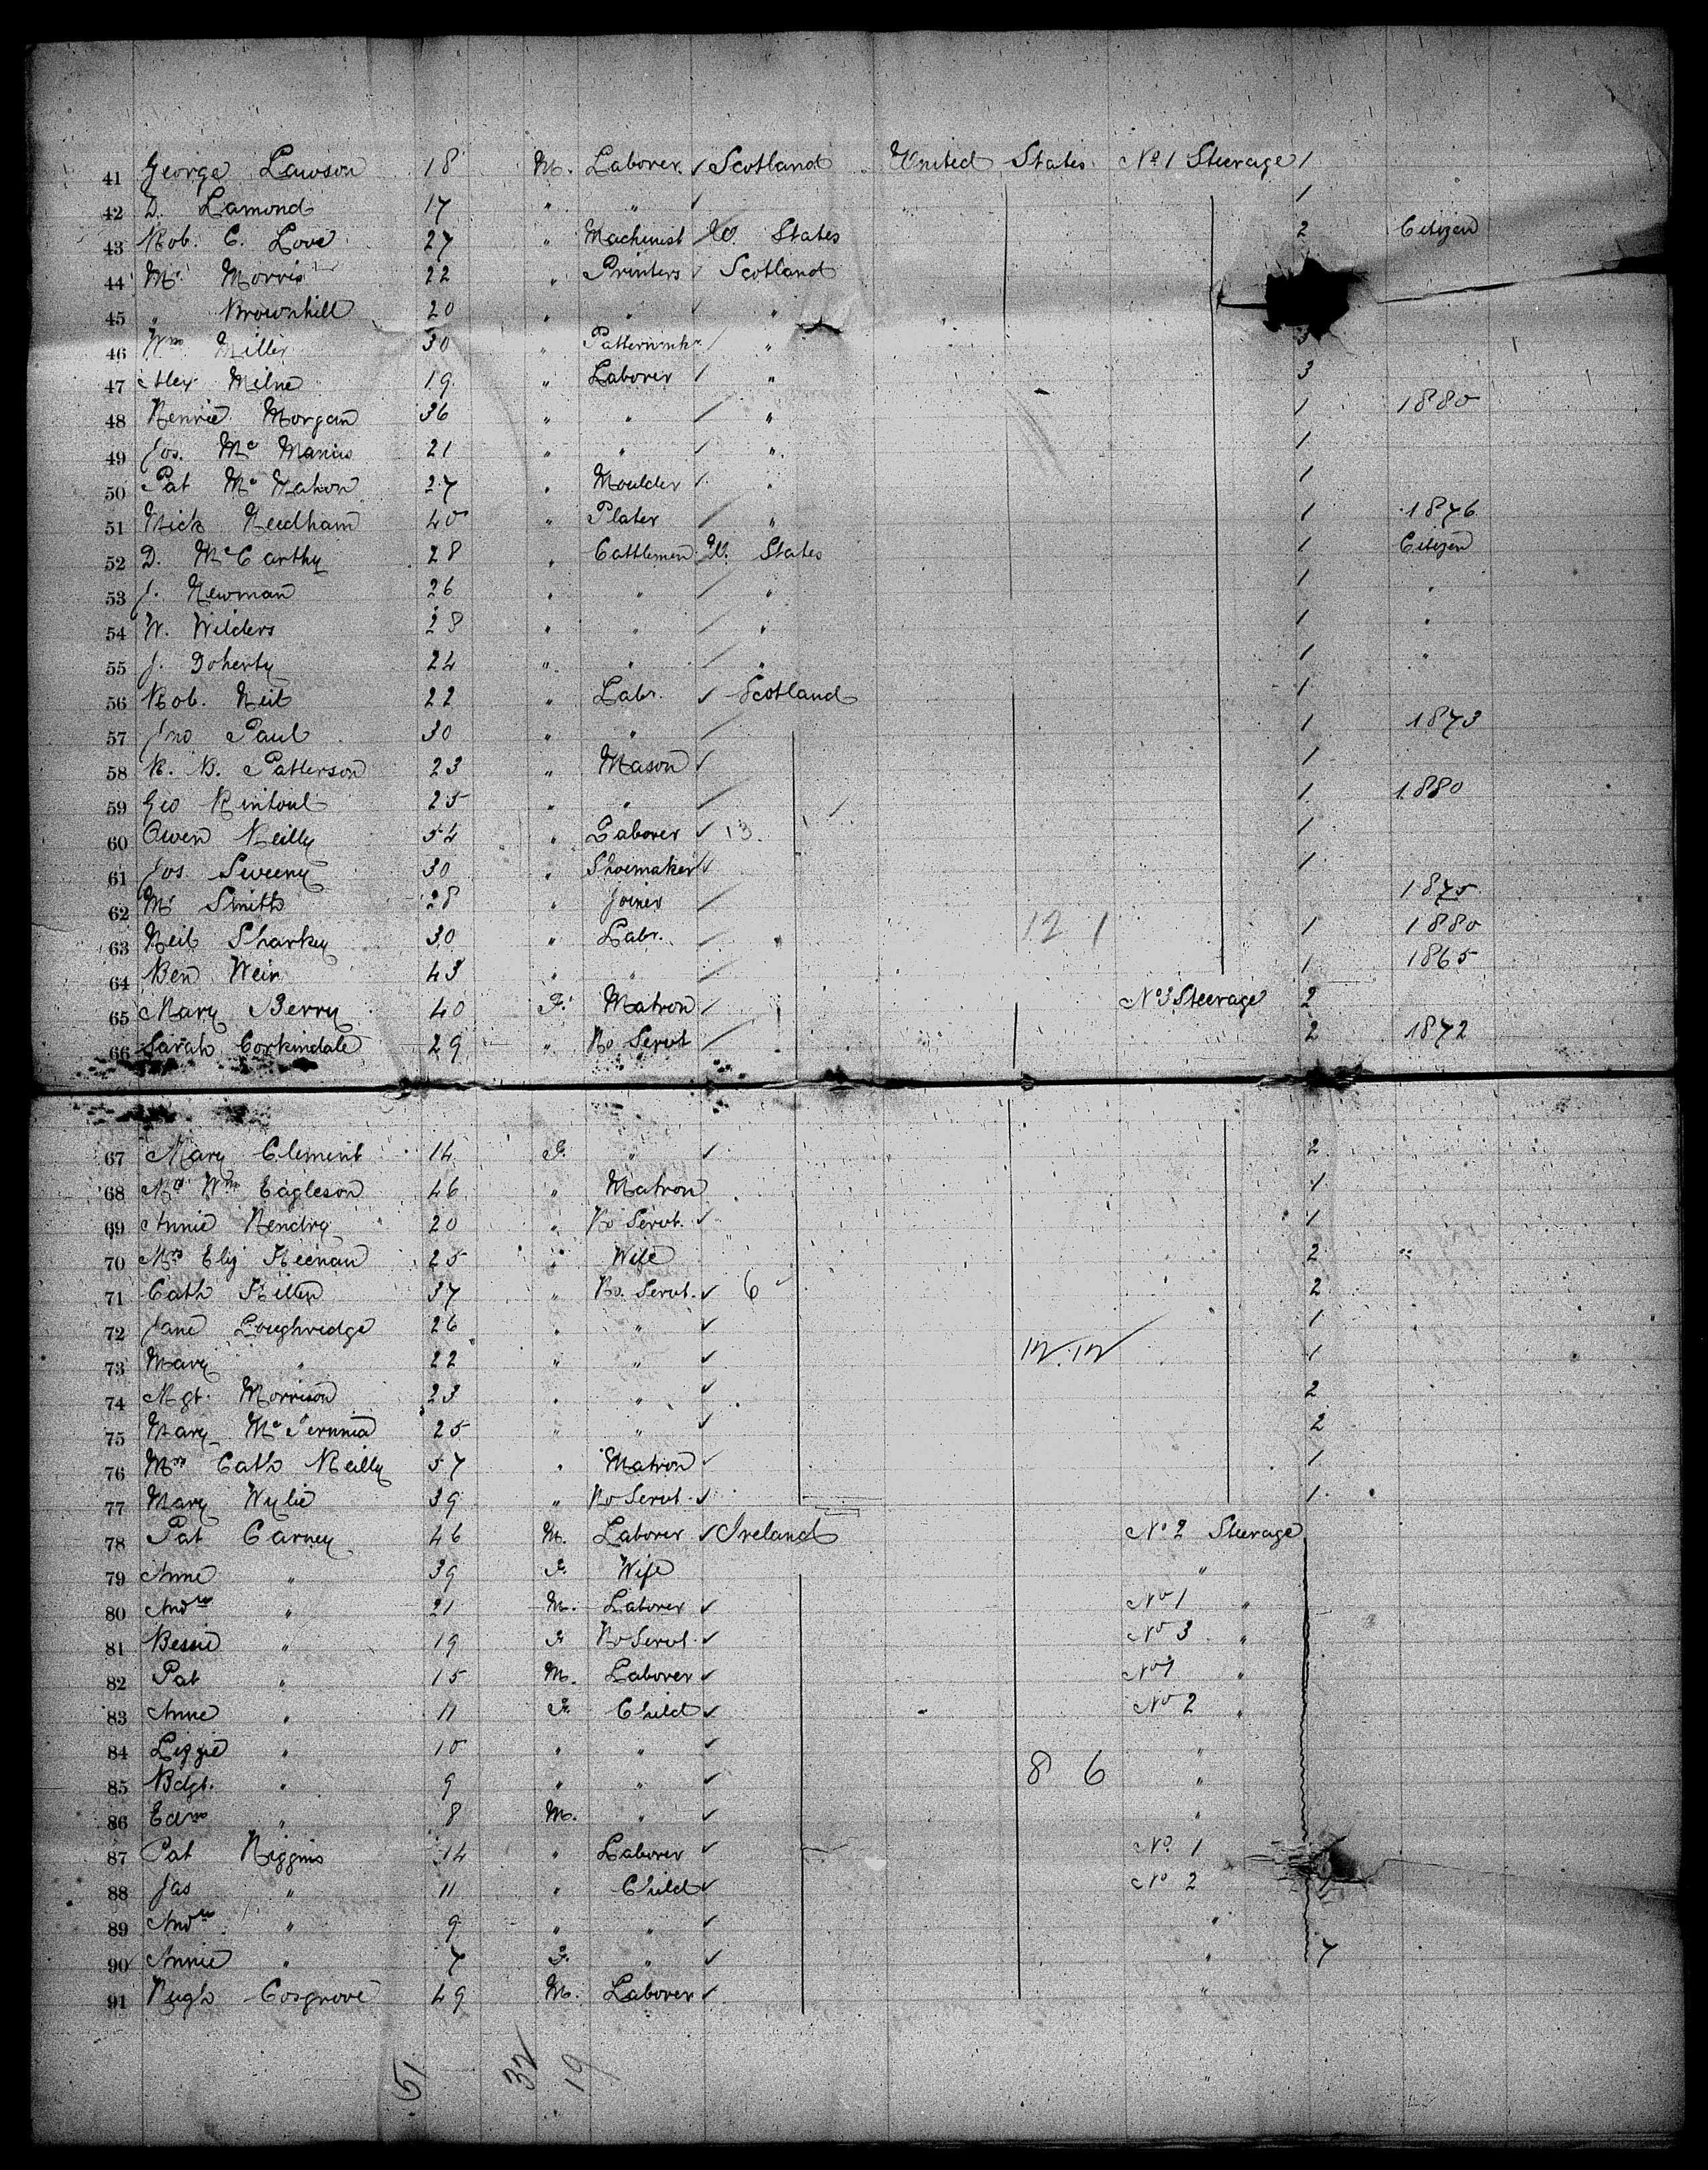 41 George Lawson 18 M. Laborer ✓ Scotland United States No 1 Steerage 1
42 D. Lamond 17 " " ✓ 1
43 Rob. C. Love 27 " Machinist U. States 2 Citizen
44 Morris 22 " Printers Scotland
45 " Brownhill 20 " " "
46 Wm Miller 30 " Patternmkr "
47 Alex Milne 19 " Laborer "  3
48 Henrie Morgan 36 " " " 1 1880
49 Jos. Mc Manus 21 " " " 1
50 Pat Mc Mahon 27 " Moulder " 1
51 Mick Needham 40 " Plater " 1 1876
52 D. McCarthy 28 " Cattlemen U. States 1 Citizen
53 J. Newman 26 " " " 1 "
54 W. Wilders 28 " " " 1 "
55 J. Doherty 24 " " " 1 "
56 Rob. Neil 22 " Labr. ✓ Scotland 1
57 Jno Paul 30 " " 1 1873
58 R. B. Patterson 23 " Mason ✓ 1
59 Geo Rintoul 25 " " 1 1880
60 Owen Reilly 54 " Laborer ✓ 13 1
61 Jos Sweeny 30 " Shoemaker ✓ 1
62 Smith 28 " Joiner 1875
63 Neil Sharkey 30 " Labr. 12 1 1 1880
64 Ben Weir 43 " " 1 1865
65 Mary Berry 40 F. Matron No 3 Steerage 2
66 Sarah Corkindale 29 " Ho Servt 2 1872
67 Mary Clement 14 F. " ✓ 2
68 Mrs Wm Eagleson 46 " Matron 1
69 Annie Hendry 20 " Ho Servt. ✓ 1
70 Mrs Eliz Keenan 25 " Wife 2 "
71 Cath Killen 37 " Ho. Servt. ✓ 6 2
72 Jane Loughridge 26 " " ✓ 1
73 Mary " 22 " " ✓ 12 12 1
74 Mgt. Morrison 23 " " ✓ 2
75 Mary 25 " " ✓ 2
76 Mrs Cath Reilly 57 " Matron ✓ 1
77 Mary Wylie 39 " Ho Servt. ✓ 1
78 Pat Carney 46 M. Laborer ✓ Ireland No 2 Steerage
79 Anne " 39 F. Wife "
80 Andw " 21 M. Laborer ✓ No 1 "
81 Bessie " 19 F Ho Servt. ✓ No 3 "
82 Pat " 15 M. Laborer ✓ No 1 "
83 Anne " 11 F. Child ✓ No 2 "
84 Lizzie " 10 " " ✓ "
85 Bdgt. " 9 " " ✓ 8 6 "
86 Edm " 8 M. " ✓ "
87 Pat Higgins 14 " Laborer ✓ No 1
88 Jas " 11 " Child ✓ No 2
89 Andw " 9 " " ✓ "
90 Annie " 7 F. " ✓ " 7
91 Hugh Cosgrove 49 M. Laborer ✓ "
51 32 19 "